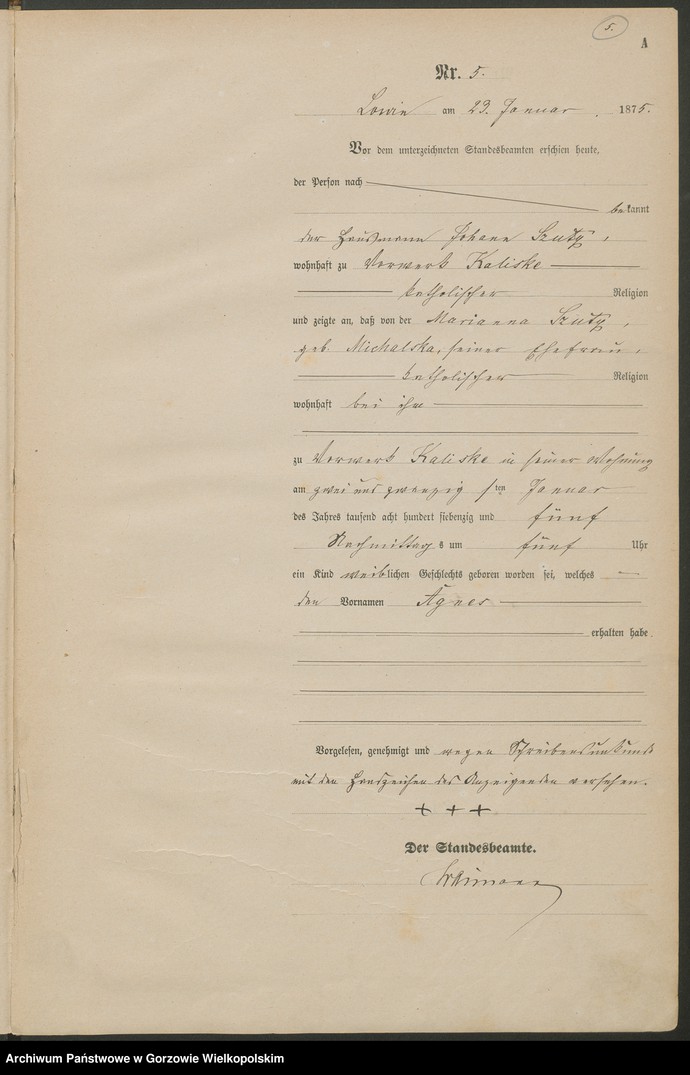 5.
A
Nr. 5.
Lowin am 23. Januar 1875.
Vor dem unterzeichneten Standesbeamten erschien heute,
der Person nach
bekannt
der Hausmann Johann Szuty,
wohnhaft zu Vorwerk Kaliske
katholischer Religion
und zeigte an, daß von der Marianna Szuty,
geb. Michalska, seiner Ehefrau,
katholischer Religion
wohnhaft bei ihm
zu Vorwerk Kaliske in seiner Wohnung
am zwei und zwanzigsten Januar
des Jahres tausend acht hundert siebenzig und fünf
Nachmittags um fünf Uhr
ein Kind weiblichen Geschlechts geboren worden sei, welches
den Vornamen Agnes
erhalten habe.
Vorgelesen, genehmigt und wegen Schreibensunkunde
mit den Handzeichen des Anzeigenden versehen.
+ + +
Der Standesbeamte.
Archiwum Państwowe w Gorzowie Wielkopolskim